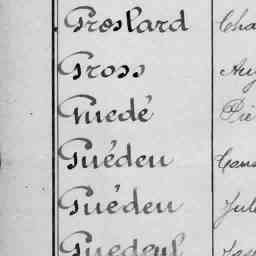 Groslard Cha
Gross Aug
Guedé Pie
Guéden Cons
Guéden Jule
Guedeul